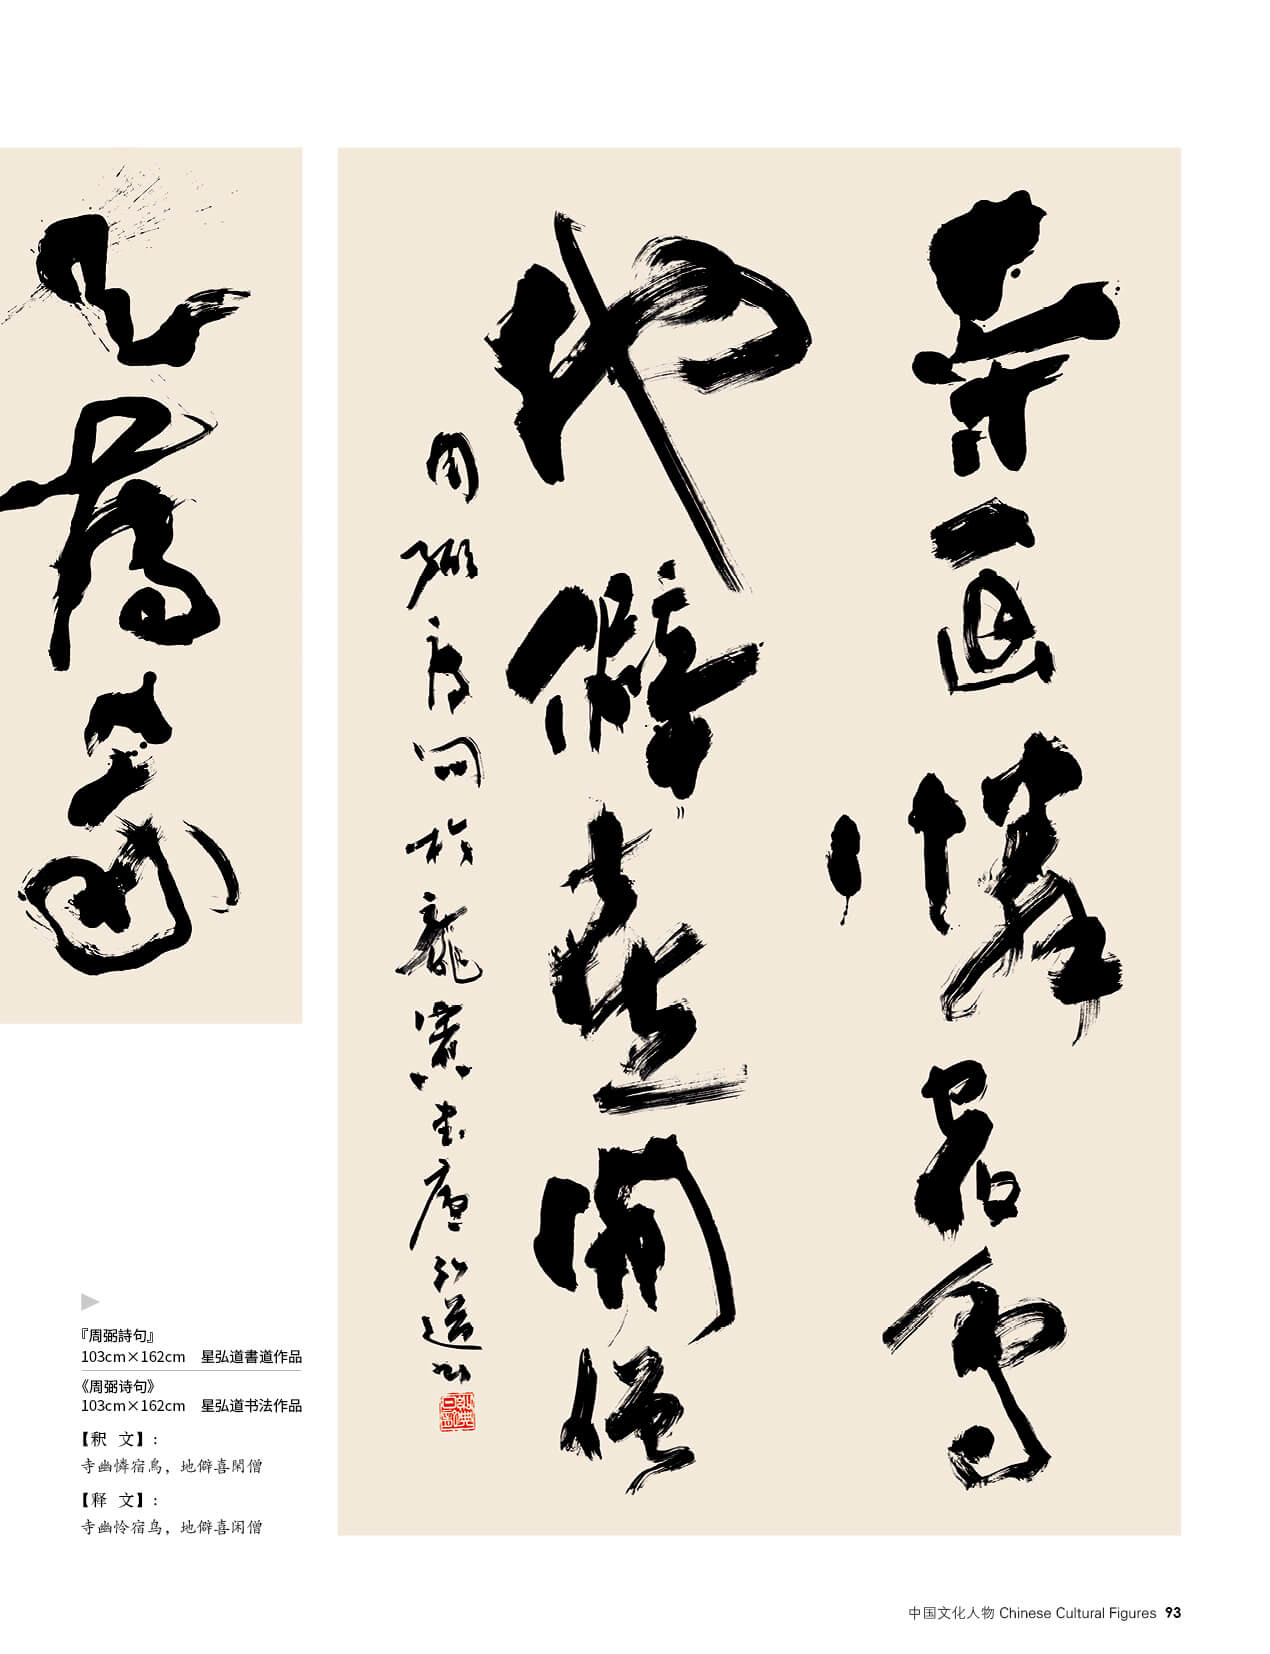 寺幽憐宿鳥
地僻喜閒僧
周弼詩句於龍
書庵弘道
『周弼詩句』
103cm×162cm 星弘道書道作品
《周弼诗句》
103cm×162cm 星弘道书法作品
【釈 文】：
寺幽憐宿鳥，地僻喜閑僧
【释 文】：
寺幽怜宿鸟，地僻喜闲僧
中国文化人物 Chinese Cultural Figures 93